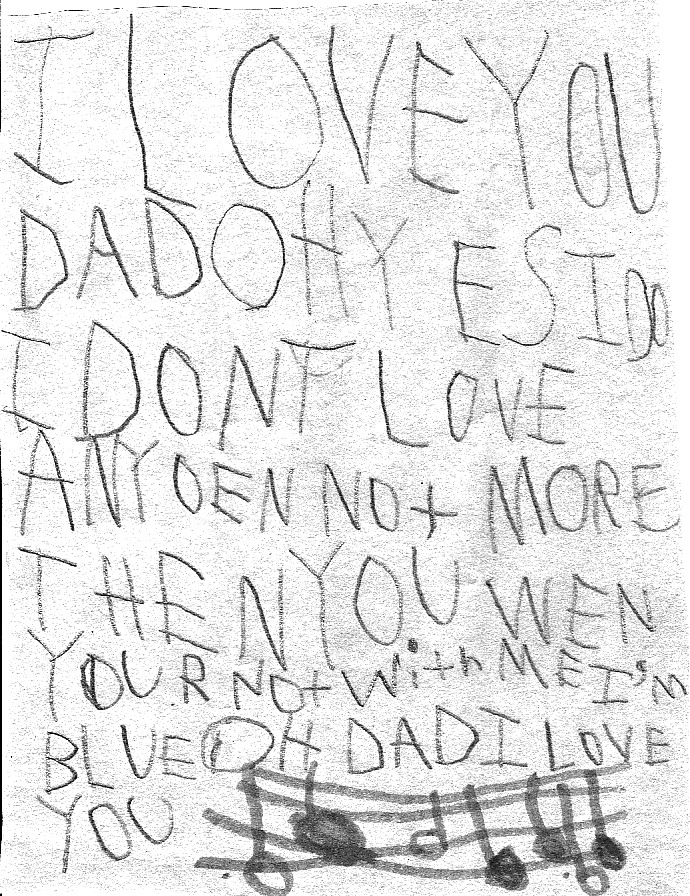 I LOVE YOU
DAD OH YES I DO
I DONT LOVE
ANY OEN NOt MORE
THEN YOU WEN
YOUR NOt With ME I'm
BLUE OH DAD I LOVE
YOU